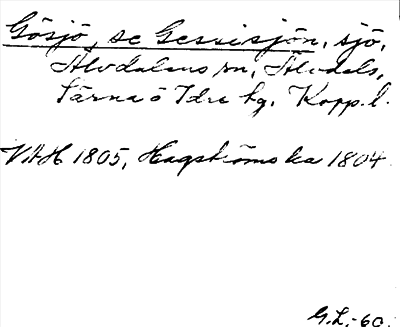 Gösjö, se Gessisjön, sjö,
Älvdalens sn, Älvdals,
Särna o Idre tg, Kopp. l.
VAH 1805, Hagströms ka 1804
G.L.-60.